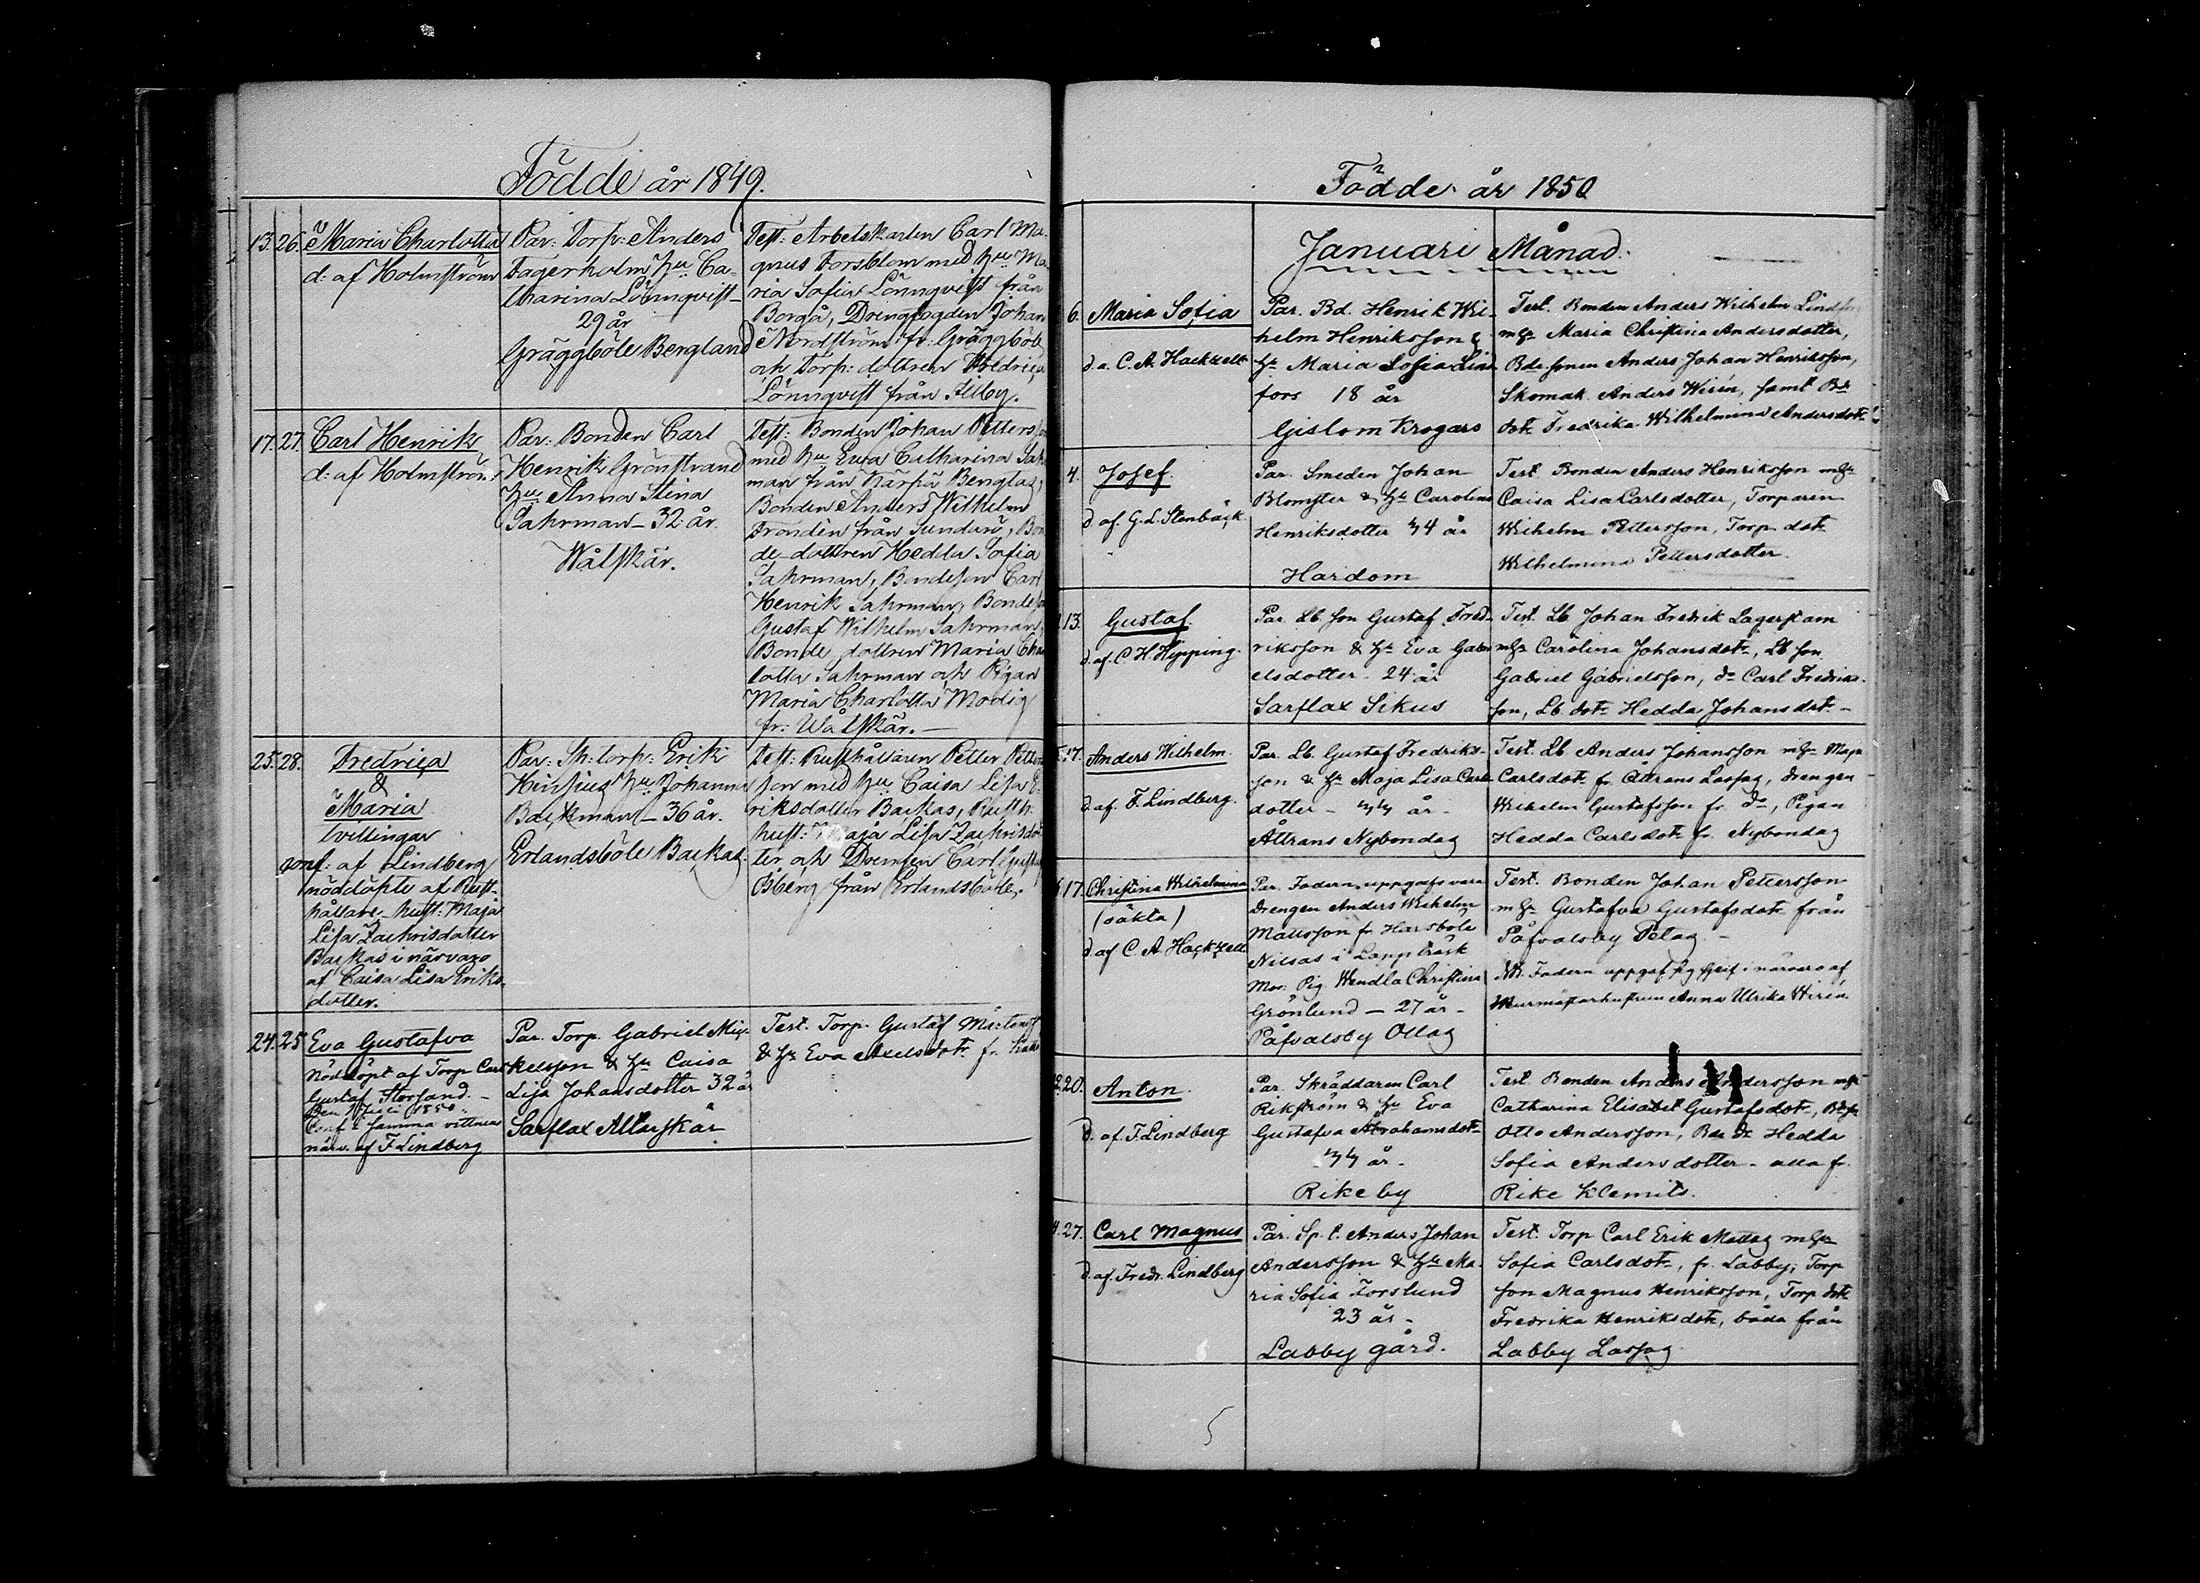 Födde år 1849.
13. 26. Maria Charlotta
d: af Holmström
Par: Torp: Anders
Fagerholm hu Ca-
tharina Lönnqvist
29 år
Gräggböle Bergland
Test: Arbetskarlen Carl Ma-
gnus Forsblom med hu Ma-
ria Sofia Lönnqvist från
Borgå, Drengfogden Johan
Nordström fr: Gräggböle
och Torp: dottren Fredrica
Lönnqvist från Illby.
17. 27. Carl Henrik
d: af Holmström
Par: Bonden Carl
Henrik Grönstrand
hu Anna Stina
Sahrman - 32 år.
Wålskär.
Test: Bonden Johan Petterss
med hu Eva Catharina Sah
man från Härpä Bengtas,
Bonden Anders Wilhelm
Frondén från Sundarö, Bon
de dottren Hedda Sofia
Sahrman, Bondeson Carl
Henrik Sahrman, Bondeso
Gustaf Wilhelm Sahrman
Bonde dottren Maria Cha
lotta Sahrman och Pigan
Maria Charlotta Modig
fr: Wålskär. -
25. 28. Fredrica
&
Maria
tvillingar
conf: af Lindberg
nöddöpte af Rust-
hållare hust: Maja
Lisa Zachrisdotter
Backas i närvaro
af Caisa Lisa Eriks-
dotter.
Par: Sk: torp: Erik
hu Johanna
Backman - 36 år.
Erlandsböle Backas.
Test: Rusthållaren Petter Petters
son med hu Caisa Lisa E-
riksdotter Backas, Rusth:
hust: Maja Lisa Zachrisdot
ter och Drengen Carl Gustaf
Öberg från Erlandsböle.
24. 25 Eva Gustafva
Nöddöpt af Torp Carl
Gustaf Storsand. -
Den 1 Juli 1850
Conf i samma vittnens
närv. af F Lindberg
Par. Torp. Gabriel Mic-
kelsson & hu Caisa
Lisa Johansdotter 32 år
Sarflax Altarskär
Test. Torp. Gustaf Mårtens
& hu Eva Axelsdotr fr.
Födde år 1850
Januari Månad.
6. Maria Sofia
d. a. C. A. Hackzell
Par. Bd. Henrik Wil-
helm Henriksson &
hu Maria Sofia Lind
fors 18 år
Gislom Krogars
Test. Bonden Anders Wilhelm Lindfors
mhu Maria Christina Andersdotter,
Bdesonen Anders Johan Henriksson,
Skomak. Anders Wirén, samt Bde
dotr Fredrika Wilhelmina Andersdotr
4. Josef.
d af. G. L. Stenbäck
Par. Smeden Johan
Blomster & hu Carolina
Henriksdotter 44 år
Hardom
Test Bonden Anders Henriksson mhu
Caisa Lisa Carlsdotter, Torparen
Wilhelm Pettersson, Torp dotr
Wilhelmina Pettersdotter.
13. Gustaf.
d. af. C H Hipping.
Par. Lb son Gustaf Fred-
riksson & hu Eva Gabri
elsdotter. 24 år
Sarflax Sikus
Test. Lb Johan Fredrik Lagerstam
mhu Carolina Johansdotr, Lb son
Gabriel Gabrielsson, do Carl Fredriks-
son, Lb. dotr Hedda Johansdotr -
17. Anders Wilhelm.
d. af. F. Lindberg.
Par. Lb. Gustaf Fredriks-
son & hu Maja Lisa Carls
dotter - 44 år -
Åttrans Nybondas
Test. Lb Anders Johansson mhu Maja
Carlsdotr fr. Åttrans Lassas, drengen
Wilhelm Gustafsson fr do, Pigan
Hedda Carlsdotr fr. Nybondas
17. Christina Wilhelmina
(oäkta)
d af C. A. Hackzell
Par. Fadern uppgafs vara
Drengen Anders Wilhelm
Mattsson fr Harsböle
Nilsas i Lappträsk
Mor: Pig Wendla Christina
Grönlund - 27 år -
Påfvalsby Ollas
Test. Bonden Johan Pettersson
mhu Gustafva Gustafsdotr från
Påfvalsby Pelas -
NB. Fadern uppgaf sig sjelf i närvaro af
Murmästarhustrun Anna Ulrika Wirén.
20. Anton.
d. af. F. Lindberg
Par. Skräddaren Carl
Rikström & hu Eva
Gustafva Abrahamsdotr
44 år -
Rikeby
Test. Bonden Anders Andersson mhu
Catharina Elisabet Gustafsdotr, Bdes
Otto Andersson, Bde dr Hedda
Sofia Andersdotter - alla fr.
Rike Klemits.
27. Carl Magnus
d. af. Fredr. Lindberg
Par. Sp. t. Anders Johan
Andersson & hu Ma-
ria Sofia Forslund
23 år -
Labby gård.
Test. Torp Carl Erik Mattas mhu
Sofia Carlsdotr, fr. Labby, Torp
son Magnus Henriksson, Torp dotr
Fredrika Henriksdotr, båda från
Labby Lassas.